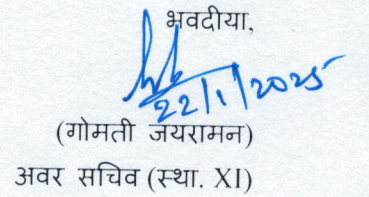 भवदीया,
22/1/2025
(गोमती जयरामन)
अवर सचिव (स्था. XI)